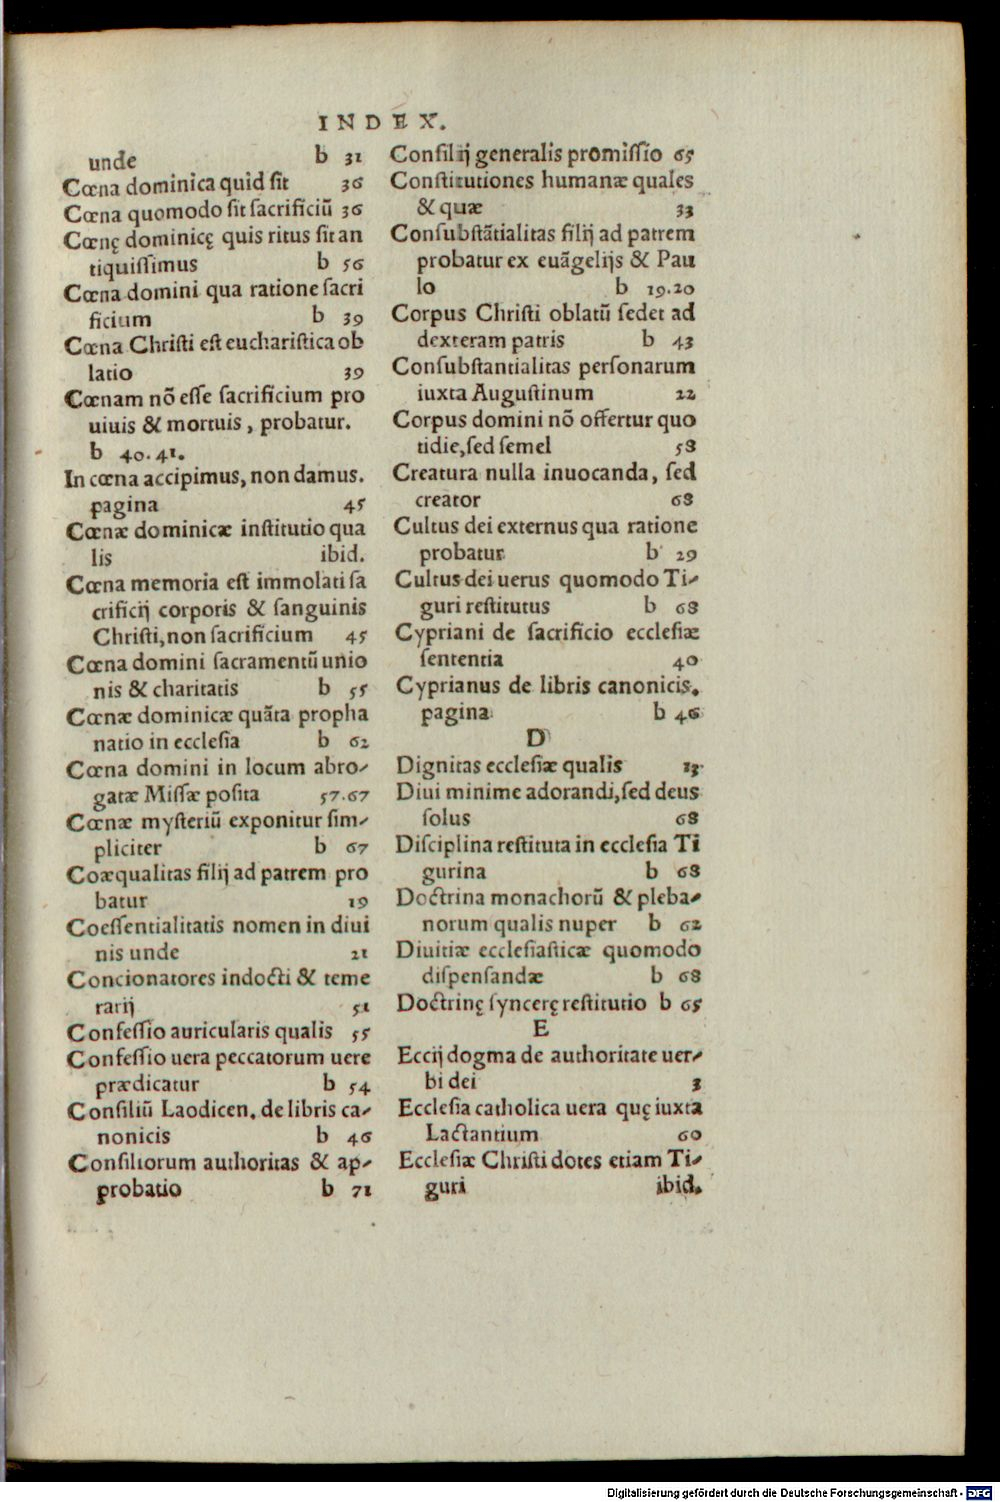 INDEX.
unde b 31
Cœna dominica quid ſit 36
Cœna quomodo ſit ſacrificiũ 36
Cœnę dominicę quis ritus ſit an
tiquiſſimus b 56
Cœna domini qua ratione ſacri
ficium b 39
Cœna Chriſti eſt euchariſtica ob
latio 39
Cœnam nõ eſſe ſacrificium pro
uiuis & mortuis, probatur.
b 40.41.
In cœna accipimus, non damus.
pagina 45
Cœnæ dominicæ inſtitutio qua
lis ibid.
Cœna memoria eſt immolati ſa
crificij corporis & ſanguinis
Chriſti, non ſacrificium 45
Cœna domini ſacramentũ unio
nis & charitatis b 55
Cœnæ dominicæ quãta propha
natio in eccleſia b 62
Cœna domini in locum abro-
gatæ Miſſæ poſita 57.67
Cœnæ myſteriũ exponitur ſim-
pliciter b 67
Coæqualitas filij ad patrem pro
batur 19
Coeſſentialitatis nomen in diui
nis unde 21
Concionatores indocti & teme
rarij 51
Confeſſio auricularis qualis 55
Confeſſio uera peccatorum uere
prædicatur b 54
Conſiliũ Laodicen. de libris ca-
nonicis b 46
Conſiliorum authoritas & ap-
probatio b 71
Conſilij generalis promiſſio 65
Conſtitutiones humanæ quales
& quæ 33
Conſubſtãtialitas filij ad patrem
probatur ex euãgelijs & Pau
lo b 19.20
Corpus Chriſti oblatũ ſedet ad
dexteram patris b 43
Conſubſtantialitas perſonarum
iuxta Auguſtinum 22
Corpus domini nõ offertur quo
tidie, ſed ſemel 58
Creatura nulla inuocanda, ſed
creator 68
Cultus dei externus qua ratione
probatur b 29
Cultus dei uerus quomodo Ti-
guri reſtitutus b 68
Cypriani de ſacrificio eccleſiæ
ſententia 40
Cyprianus de libris canonicis.
pagina b 46
D
Dignitas eccleſiæ qualis 13
Diui minime adorandi, ſed deus
ſolus 68
Diſciplina reſtituta in eccleſia Ti
gurina b 68
Doctrina monachorũ & pleba-
norum qualis nuper b 62
Diuitiæ eccleſiaſticæ quomodo
diſpenſandæ b 68
Doctrinę ſyncerę reſtitutio b 65
E
Eccij dogma de authoritate uer-
bi dei 3
Eccleſia catholica uera quę iuxta
Lactantium 60
Eccleſiæ Chriſti dotes etiam Ti-
guri ibid.
Digitalisierung gefördert durch die Deutsche Forschungsgemeinschaft - DFG